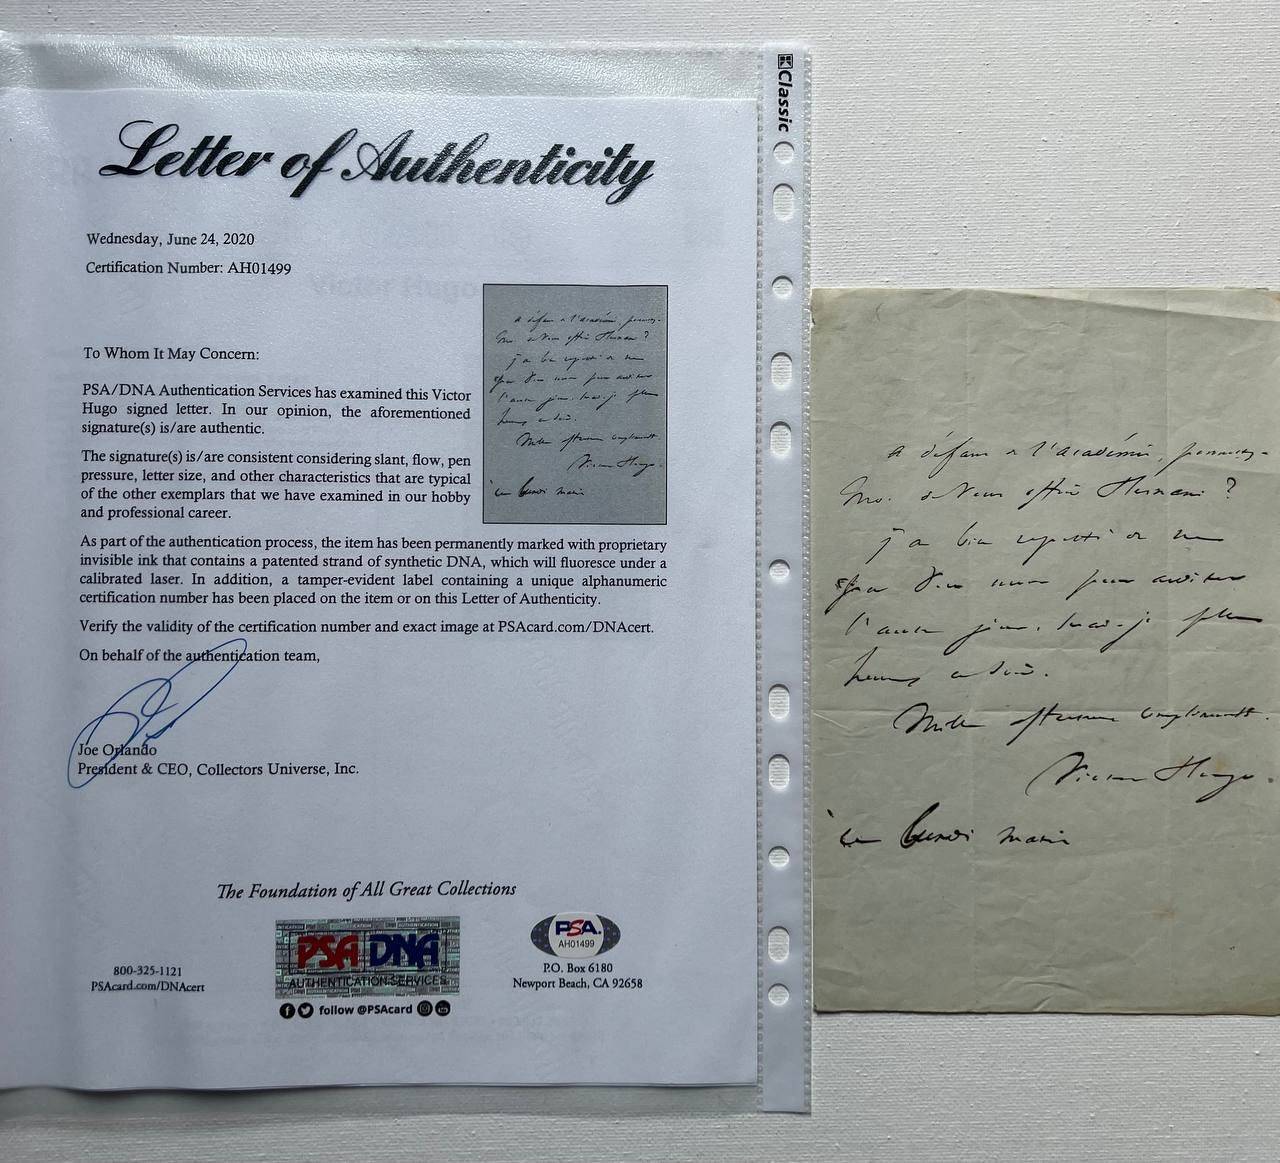 Classic
Letter of Authenticity
Wednesday, June 24, 2020
Certification Number: AH01499
To Whom It May Concern:
PSA/DNA Authentication Services has examined this Victor
Hugo signed letter. In our opinion, the aforementioned
signature(s) is/are authentic.
The signature(s) is/are consistent considering slant, flow, pen
pressure, letter size, and other characteristics that are typical
of the other exemplars that we have examined in our hobby
and professional career.
As part of the authentication process, the item has been permanently marked with proprietary
invisible ink that contains a patented strand of synthetic DNA, which will fluoresce under a
calibrated laser. In addition, a tamper-evident label containing a unique alphanumeric
certification number has been placed on the item or on this Letter of Authenticity.
Verify the validity of the certification number and exact image at PSAcard.com/DNAcert.
On behalf of the authentication team,
Joe Orlando
President & CEO, Collectors Universe, Inc.
The Foundation of All Great Collections
PSA DNA
AUTHENTICATION SERVICES
800-325-1121
PSAcard.com/DNAcert
follow @PSAcard
PSA
AH01499
P.O. Box 6180
Newport Beach, CA 92658
à défaut de l'académie, permettez-
moi de vous offrir Hernani ?
j'ai bien regretté de
l'autre jour. Serai-je plus
heureux
Mille affectueux compliments.
Victor Hugo.
ce lundi matin